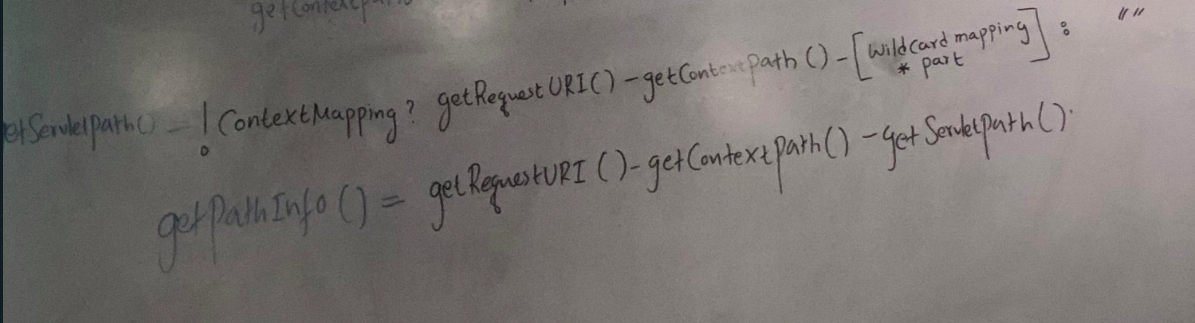 getContextpa
etServletpath() = !ContextMapping? getRequestURI() - getContextpath() - [wildcard mapping] : ""
* part
getPathInfo() = getRequestURI() - getContextpath() - getServletpath()